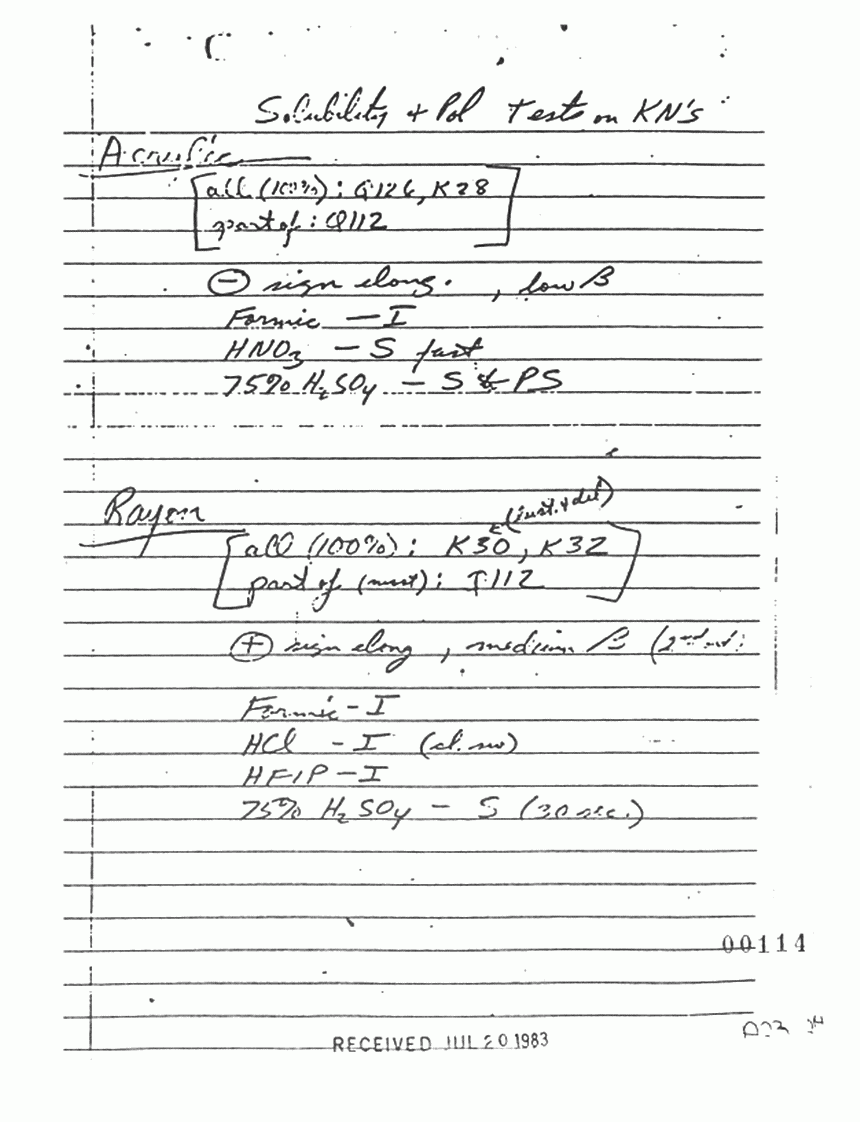 Solubility + Pol Tests on KN's
Acrylic
all (100%): Q126, K28
part of: Q112
⊖ sign elong. , low B
Formic — I
HNO3 — S fast
75% H2SO4 — S & PS
Rayon
all (100%): K30, K32
part of (must): Q112
⊕ sign elong , medium B (2nd
Formic - I
HCl - I
HFIP - I
75% H2SO4 — S (30 sec.)
00114
RECEIVED JUL 20 1983